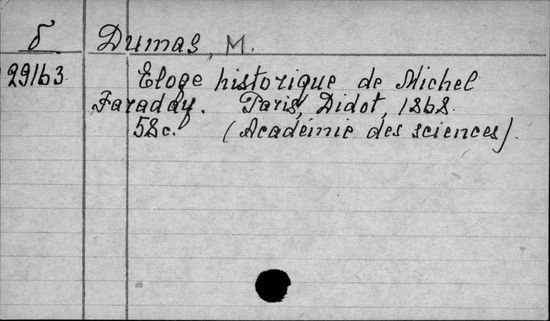 б Dumas, M.
29163. Eloge historique de Michel
Faraday. Paris, Didot, 1868.
58c. (Académie des sciences).